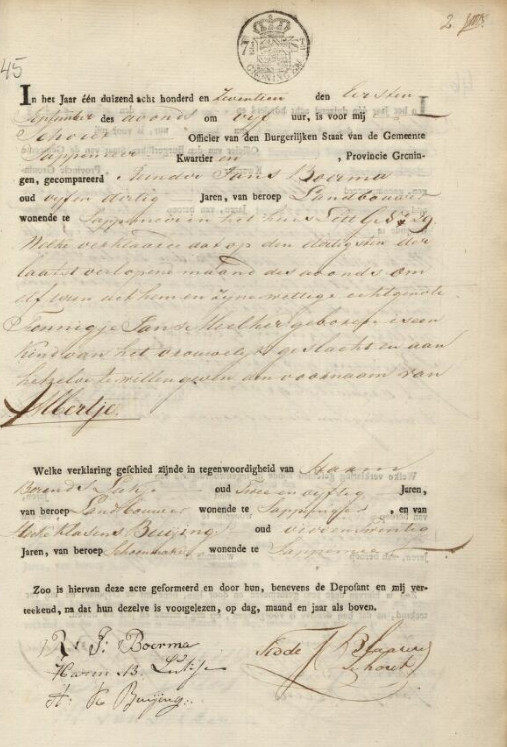 45
In het Jaar één duizend acht honderd en Zeventien den Eersten
September des avonds om vijf uur, is voor mij
Schout Officier van den Burgerlijken Staat van de Gemeente
Sappemeer Kwartier en , Provincie Gronin-
gen, gecompareerd Reinder Jans Boerma
oud vijf en dertig Jaren, van beroep Landbouwer
wonende te Sappemeer in het huis Lett
Welke verklaarde dat op den dertigsten der
laatst verlopene maand des avonds om
elf uren uit hem en zijne wettige echtgenote
Jans geboren is een
kind van het vrouwelijk geslacht en aan
hetzelve te willen geven den voornaam van
Albertje.
Welke verklaring geschied zijnde in tegenwoordigheid van Harm
Berends oud twee en vijftig Jaren,
van beroep Landbouwer wonende te Sappemeer , en van
Klasens Buijing oud
Jaren, van beroep Schoenmaker wonende te Sappemeer
Zoo is hiervan deze acte geformeerd en door hun, benevens de Deposant en mij ver-
teekend, na dat hun dezelve is voorgelezen, op dag, maand en jaar als boven.
R: J: Boerma
Harm B.
H. K Buijing.
Schout